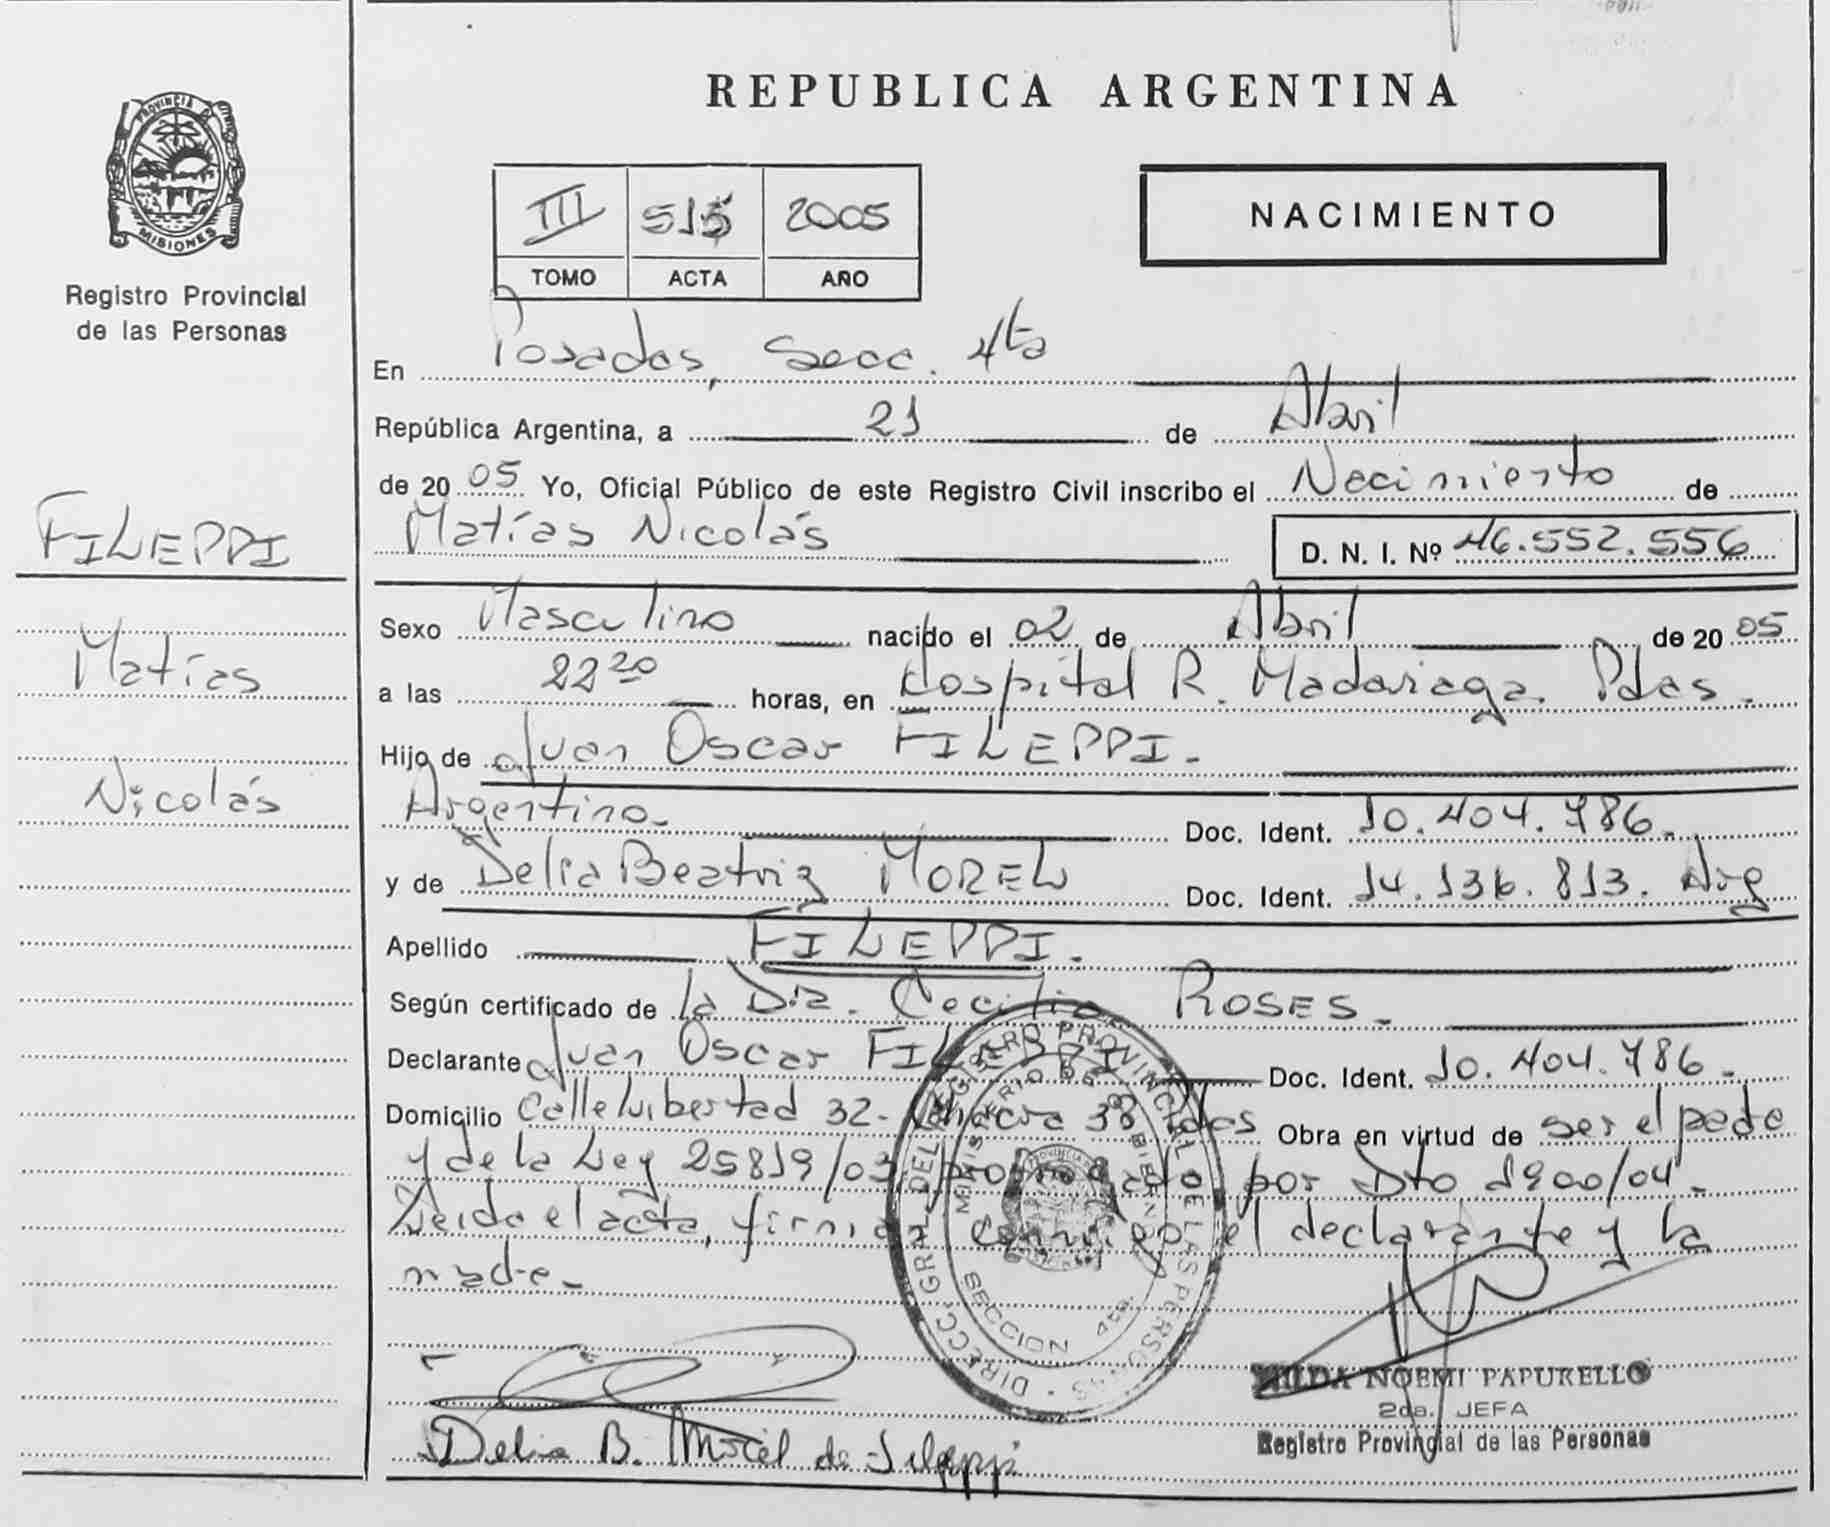 REPUBLICA ARGENTINA
PROVINCIA DE MISIONES
Registro Provincial
de las Personas
III 515 2005
TOMO ACTA AÑO
NACIMIENTO
En Posadas, Secc. 4ta
República Argentina, a 21 de Abril
de 2005 Yo, Oficial Público de este Registro Civil inscribo el Nacimiento de
Matías Nicolás D. N. I. Nº 46.552.556
FILEPPI
Matías
Nicolás
Sexo Masculino nacido el 02 de Abril de 2005
a las 22 20 horas, en Hospital R. Madariaga. Pdas.
Hijo de Juan Oscar FILEPPI.
Argentino. Doc. Ident. 10.404.786.
y de Delia Beatriz MOREL Doc. Ident. 14.136.813. Arg
Apellido FILEPPI.
Según certificado de la Dra. Cecilia ROSES.
Declarante Juan Oscar FILEPPI Doc. Ident. 10.404.786.
Domicilio Calle Libertad 32. Chacra 38 Pdas Obra en virtud de ser el padre
y de la Ley 25819/03 prorrogado por Dto 1900/04.
Leida el acta, firman conmigo el declarante y la
madre.
DIRECC. GRAL. DEL REGISTRO PROVINCIAL DE LAS PERSONAS
SECCION 4ta.
HILDA NOEMI PAPURELLO
2da. JEFA
Registro Provincial de las Personas
Delia B. Morel de Fileppi